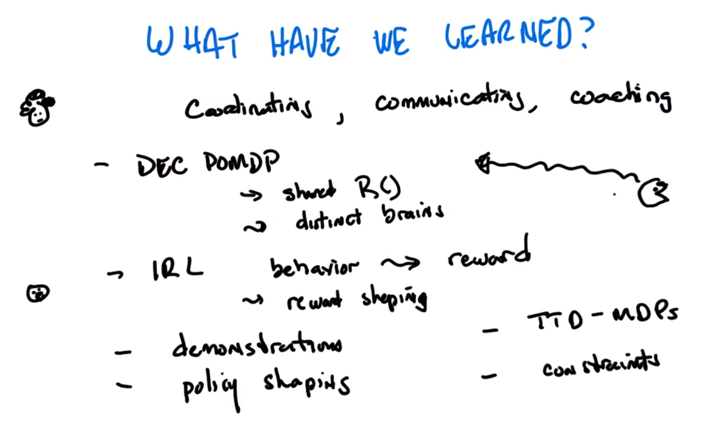 WHAT HAVE WE LEARNED?
Coordinating, communicating, coaching
- DEC POMDP
→ shared R()
→ distinct brains
→ IRL behavior → reward
→ reward shaping
- demonstrations
- policy shaping
- TTD-MDPs
- constraints